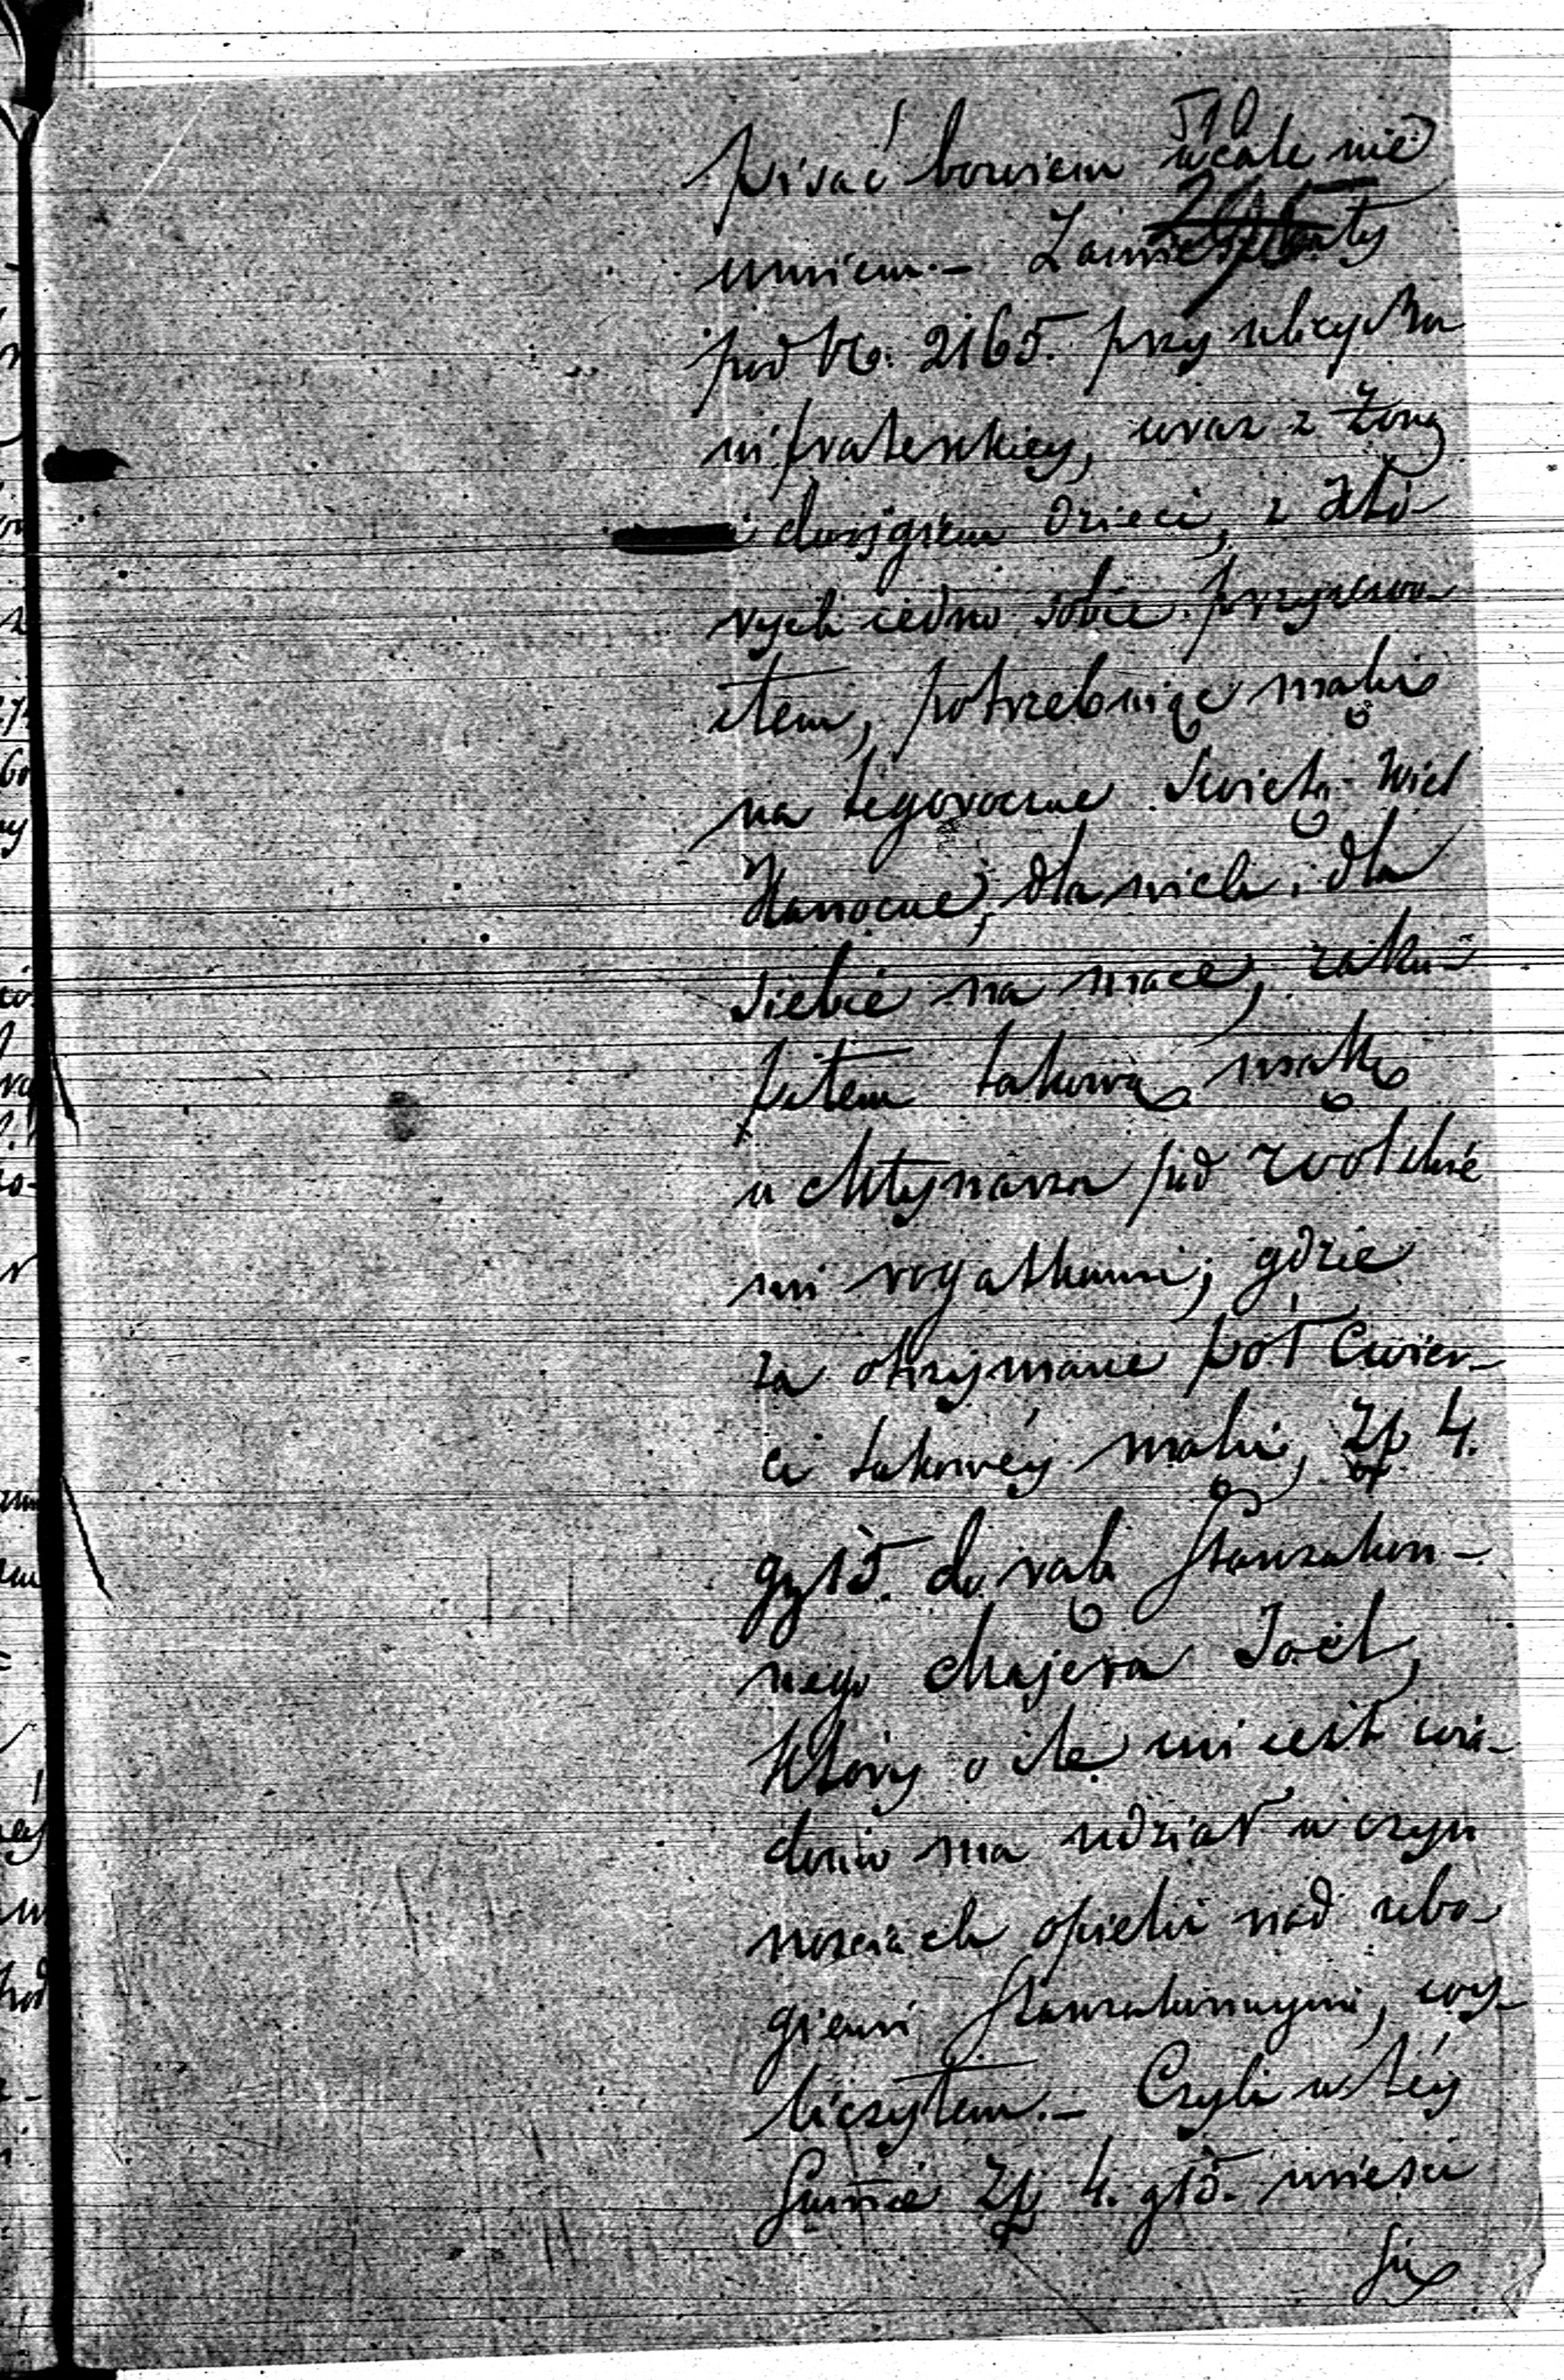 510
pisać bowiem wcale nie
295
umiem. – Zamieszkały
pod No. 2165. przy ulicy Bo
nifraterskiey, wraz z żoną
i dwojgiem dzieci, z któ-
rych iedno sobie przyswo-
iłem, potrzebuiąc mąki
na tegoroczne Swięta Wiel
kanocne, dla nich i dla
siebie na mace, zaku-
piłem takową mąkę
u Młynarza pod Wolskie
mi rogatkami; gdzie
za otrzymane pół cwier-
ci takowéy mąki, Zp 4.
gr 15. do rąk Starozakon-
nego Majera Joel,
który o ile mi iest wia-
domo ma udział w czyn
nosciach opieki nad ubo-
giemi Starozakonnymi, wy-
liczyłem. – Czyli w téy
Summie Zp 4. g 15. miesci
się